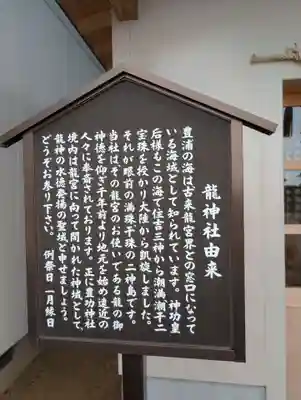 龍神社由来
豊浦の海は古来龍宮界との窓口になって
いる海域として知られています。神功皇
后様もこの海で住吉三神から潮満潮干二
宝珠を授かり大陸から凱旋しました。
それが眼前の満珠干珠の二神島です。
当社はその龍宮のお使いである龍の御
神徳を仰ぎ千年前より地元を始め遠近の
人々に奉斎されております。正に豊功神社
境内は龍宮に向って開かれた神域として、
龍神の水徳発揚の聖域と申せましょう。
どうぞお参り下さい。　例祭日　一月縁日